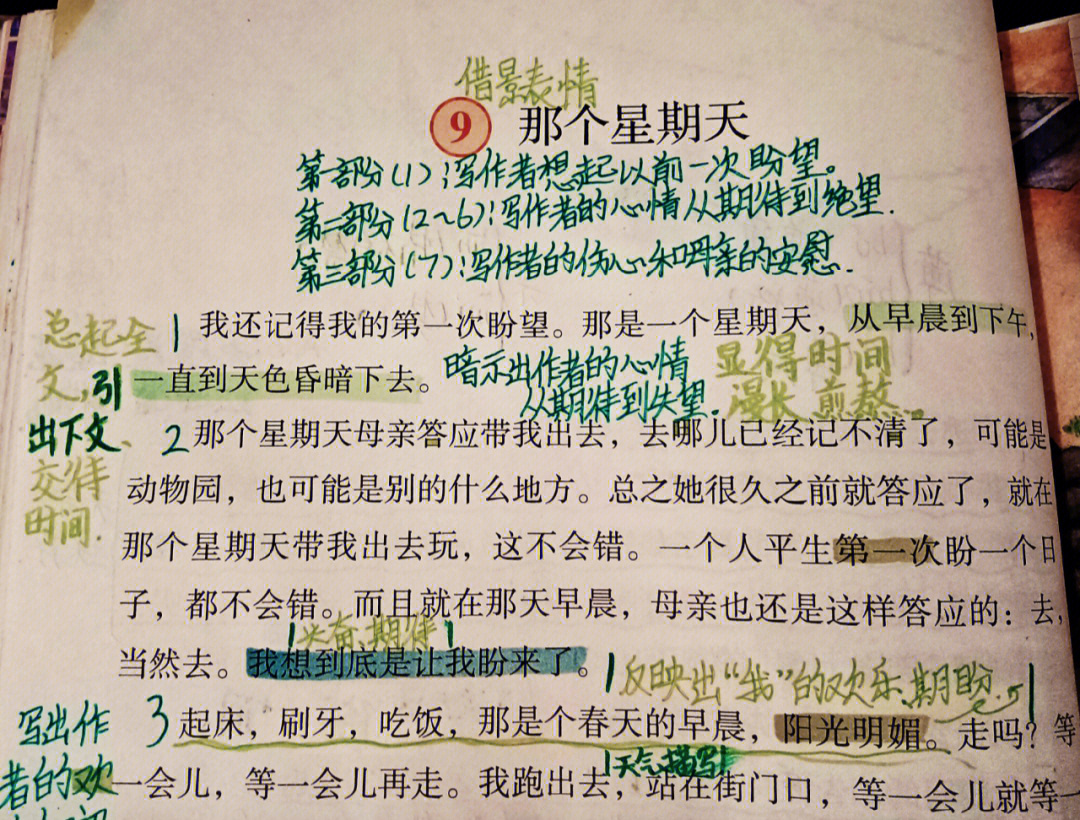 借景表情
9 那个星期天
第一部份(1):写作者想起以前一次盼望。
第二部份(2~6):写作者的心情从期待到绝望.
第三部份(7):写作者的伤心和母亲的安慰.
总起全
文,引
出下文、
交待
时间.
1 我还记得我的第一次盼望。那是一个星期天，从早晨到下午，
一直到天色昏暗下去。
暗示出作者的心情
从期待到失望。
显得时间
漫长 煎熬。
2 那个星期天母亲答应带我出去，去哪儿已经记不清了，可能是
动物园，也可能是别的什么地方。总之她很久之前就答应了，就在
那个星期天带我出去玩，这不会错。一个人平生第一次盼一个日
子，都不会错。而且就在那天早晨，母亲也还是这样答应的：去，
兴奋、期待
当然去。我想到底是让我盼来了。
反映出“我”的欢乐、期盼.
写出作
者的欢
3 起床，刷牙，吃饭，那是个春天的早晨，阳光明媚。走吗？等
天气描写
一会儿，等一会儿再走。我跑出去，站在街门口，等一会儿就等一